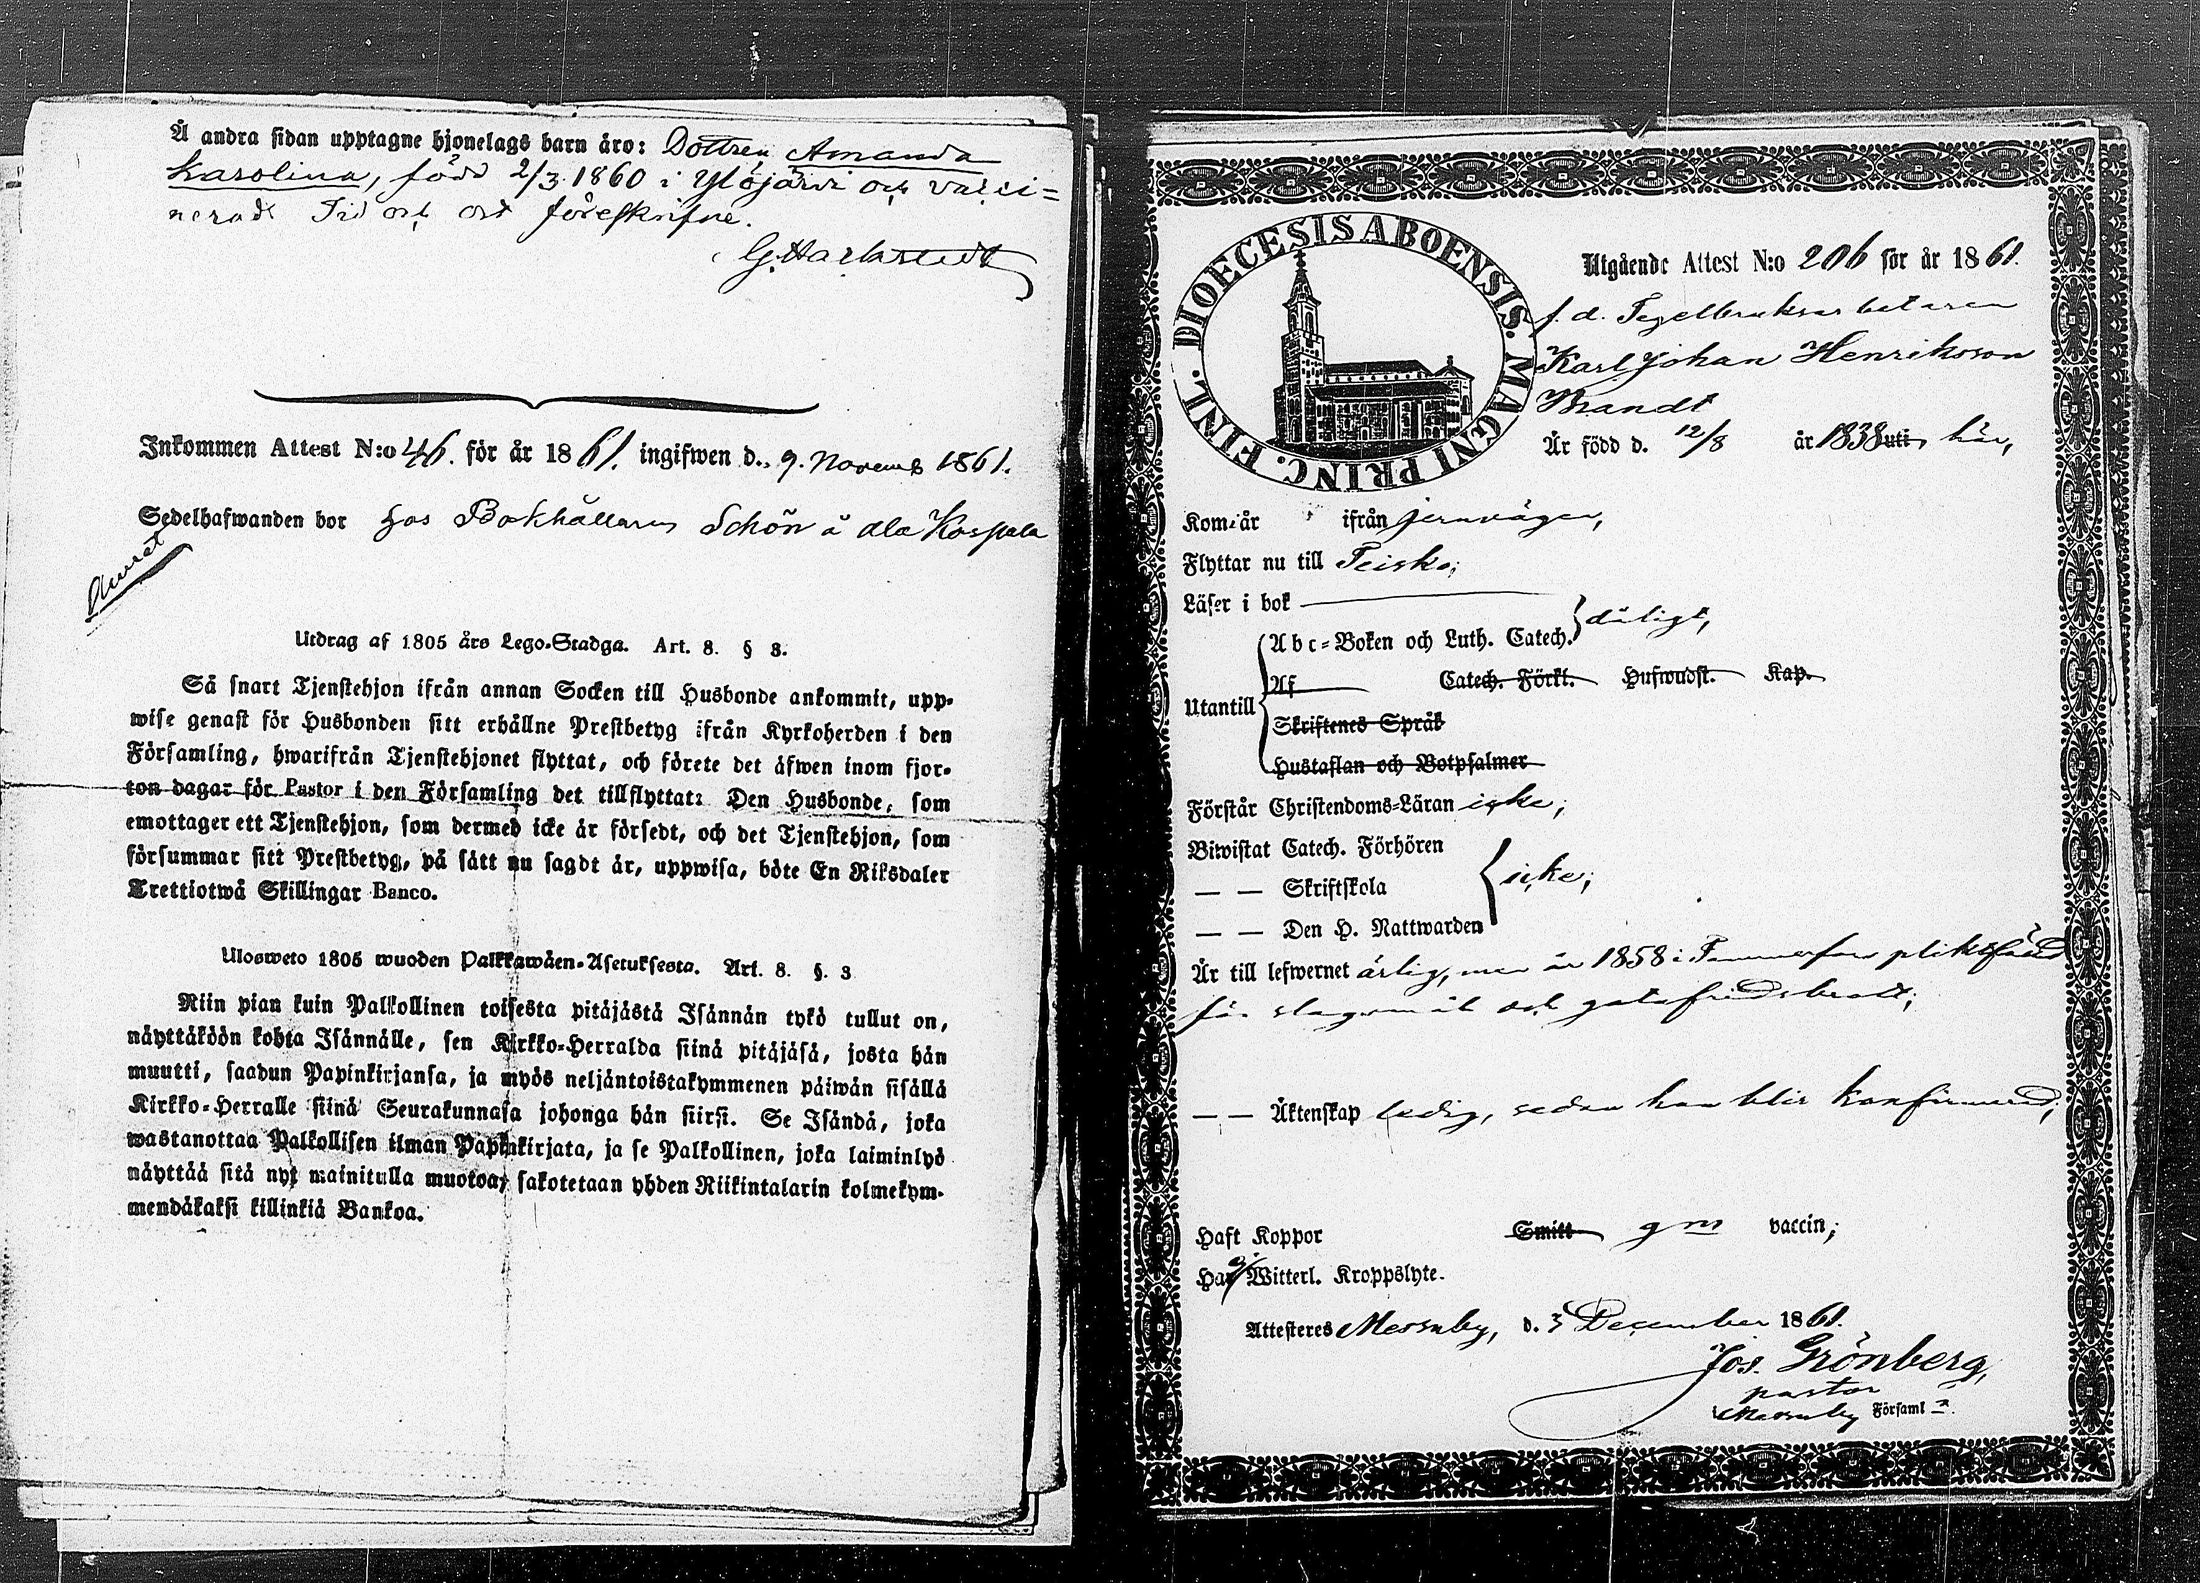 Å andra sidan upptagne hjonelags barn äro: Dottren Amanda
Karolina, född 2/3 1860 i Ylöjärvi och vacci=
nerad. Tid och ort föreskrifne.
Inkommen Attest N:o 46. för år 1861. ingifwen d. 9. Novemb 1861.
Sedelhafwanden bor hos Bokhållaren Schön å
Utdrag af 1805 års Lego-Stadga. Art. 8. § 3.
Så snart Tjenstehjon ifrån annan Socken till Husbonde ankommit, upp-
wise genast för Husbonden sitt erhållne Prestbetyg ifrån Kyrkoherden i den
Församling, hwarifrån Tjenstehjonet flyttat, och förete det äfwen inom fjor-
ton dagar för Pastor i den Församling det tillflyttat: Den Husbonde, som
emottager ett Tjenstehjon, som dermed icke är försedt, och det Tjenstehjon, som
försummar sitt Prestbetyg, på sätt nu sagdt är, uppwisa, böte En Riksdaler
Trettiotwå Skillingar Banco.
Ulosweto 1805 wuoden Palkkawäen-Asetuksesta. Art. 8. §. 3
Niin pian kuin Palkollinen toisesta pitäjästä Isännän tykö tullut on,
näyttäköön kohta Isännälle, sen Kirkko-Herralda siinä pitäjäsä, josta hän
muutti, saadun Papinkirjansa, ja myös neljäntoistakymmenen päiwän sisällä
Kirkko-Herralle siinä Seurakunnasa johonga hän siirsi. Se Isändä, joka
wastanottaa Palkollisen ilman Papinkirjata, ja se Palkollinen, joka laiminlyö
näyttää sitä nyt mainitulla muotoa, sakotetaan yhden Riikintalarin kolmekym-
mendäkaksi killinkiä Bankoa.
DIOECESIS ABOENSIS. MAGNI PRINC. FINL.
Utgående Attest N:o 206 för år 1861.
f. d. Tegelbruksarbetaren
Karl Johan Henriksson
Brandt
Är född d. 12/8 år 1838 uti här,
Kom år ifrån jernvägen,
Flyttar nu till Teisko;
Läser i bok
Utantill
Abc-Boken och Luth. Catech. dåligt,
Af Catech. Förkl. Hufwudst. Kap.
Skriftenes Språk
Hustaflan och Botpsalmer
Förstår Christendoms-Läran icke;
Biwistat Catech. Förhören
— — Skriftskola icke;
— — Den H. Nattwarden
Är till lefwernet ärlig, men är 1858 i Tammerfors pliktfäld
för slagsmål och gatufridsbrott;
— — Äktenskap ledig, sedan han blir konfirmerad;
Haft Koppor Smitt gm vaccin;
Har ej Witterl. Kroppslyte.
Attesteres Messuby, d. 3 December 1861.
Jos. Grönberg,
pastor
Messuby Församl